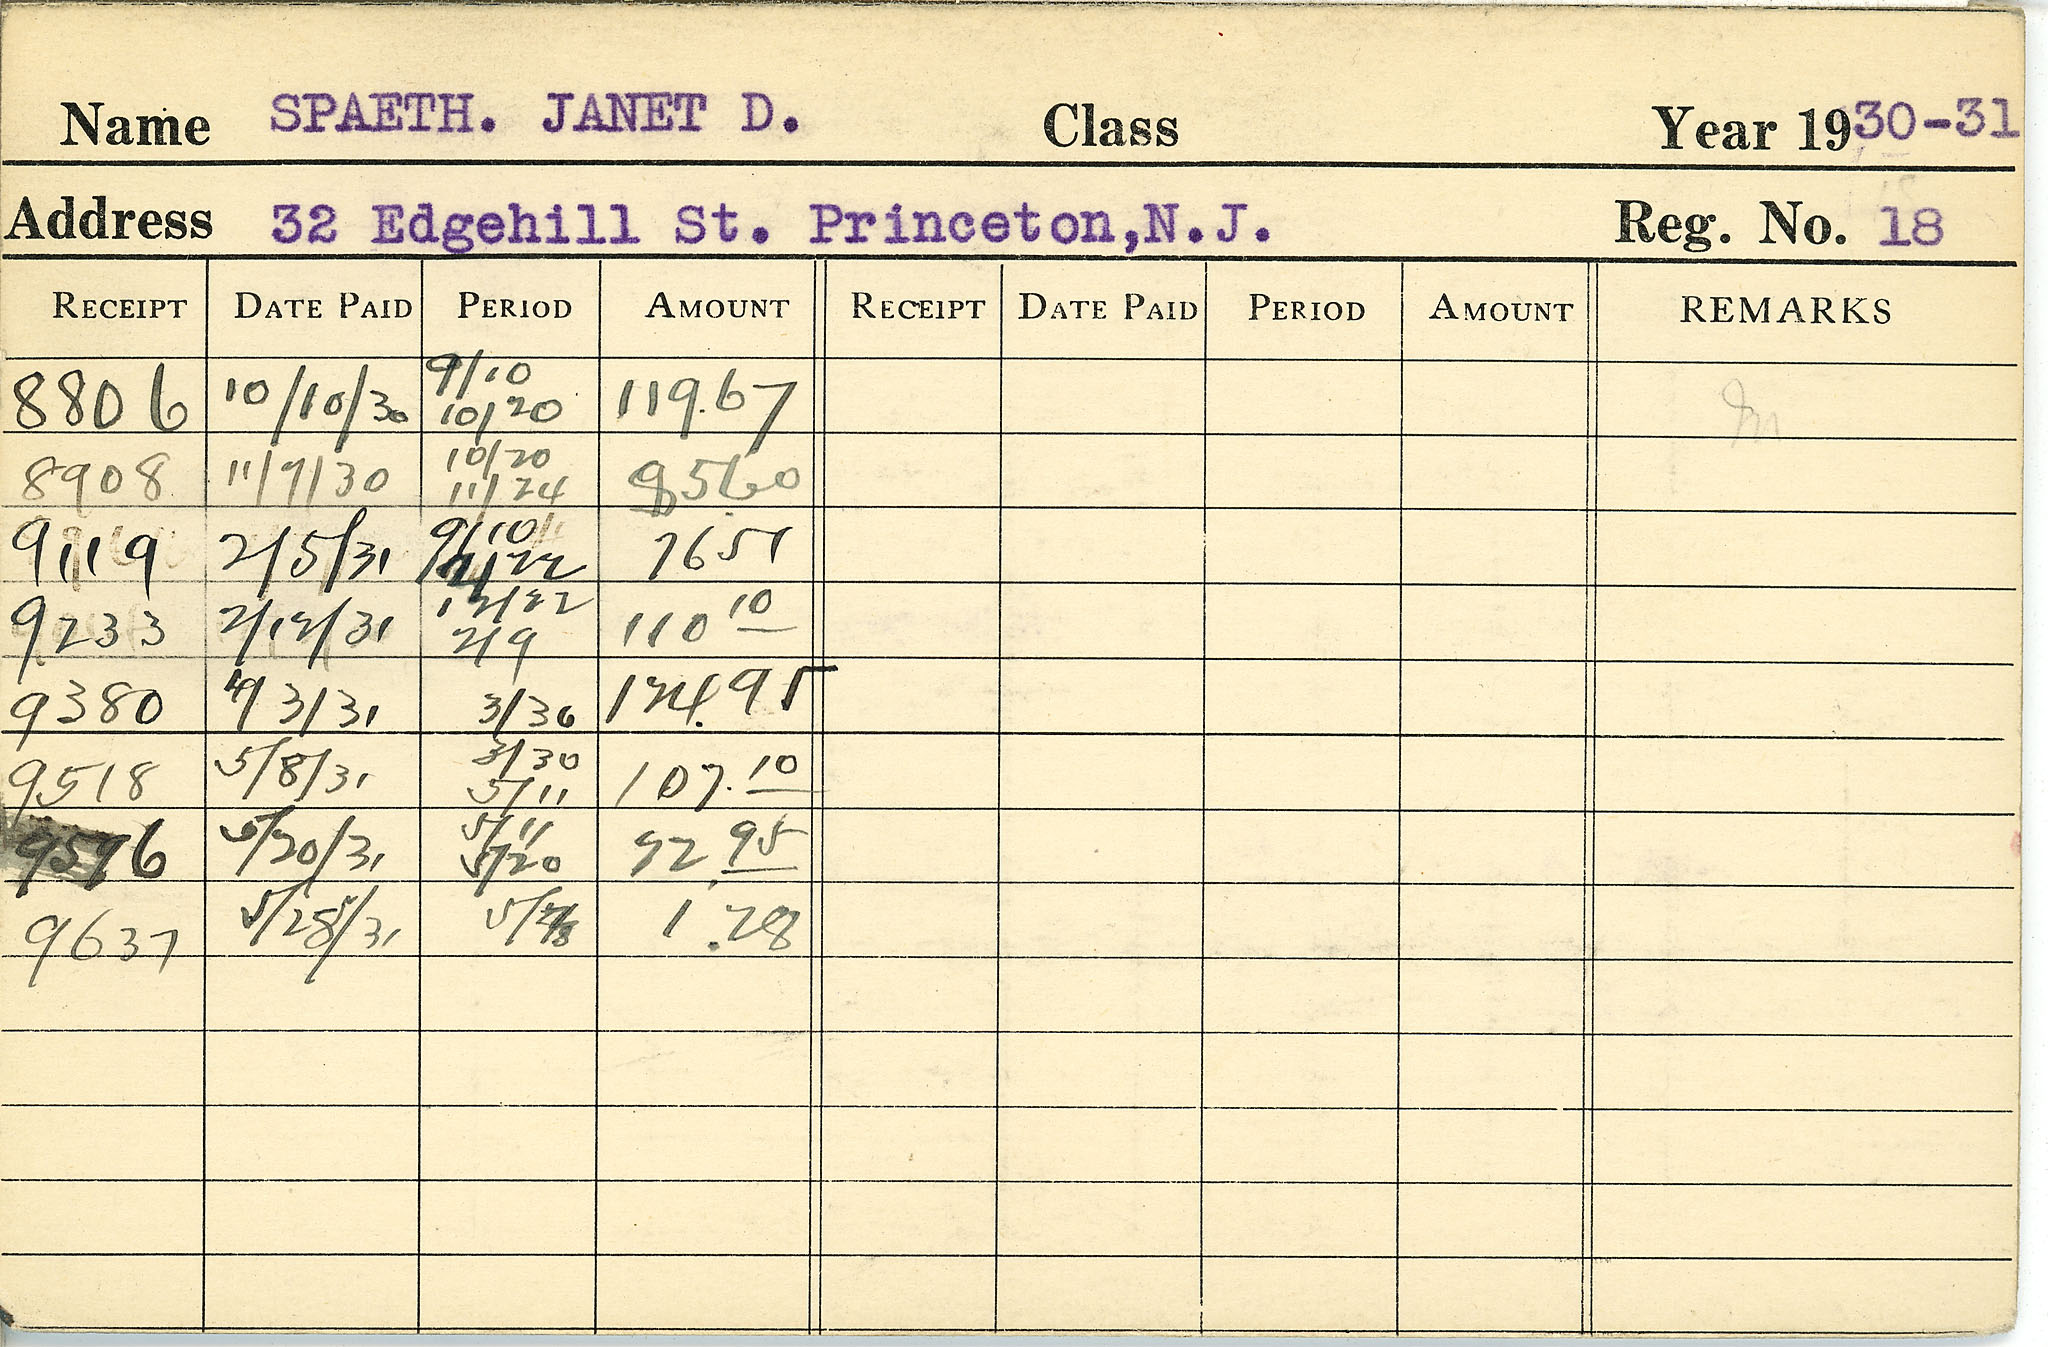 Name SPAETH. JANET D. Class Year 1930-31
Address 32 Edgehill St. Princeton,N.J. Reg. No. 18
RECEIPT DATE PAID PERIOD AMOUNT RECEIPT DATE PAID PERIOD AMOUNT REMARKS
8806 10/10/30 9/10 10/20 119.67
8908 11/7/30 10/20 11/24 8560
9119 2/5/31 9/10 7651
9233 2/12/31 12/22 2/9 110 10
9380 4/3/31 3/30 124.95
9518 5/8/31 3/30 5/11 107.10
9596 5/20/31 5/11 5/20 92.95
9637 5/28/31 1.28